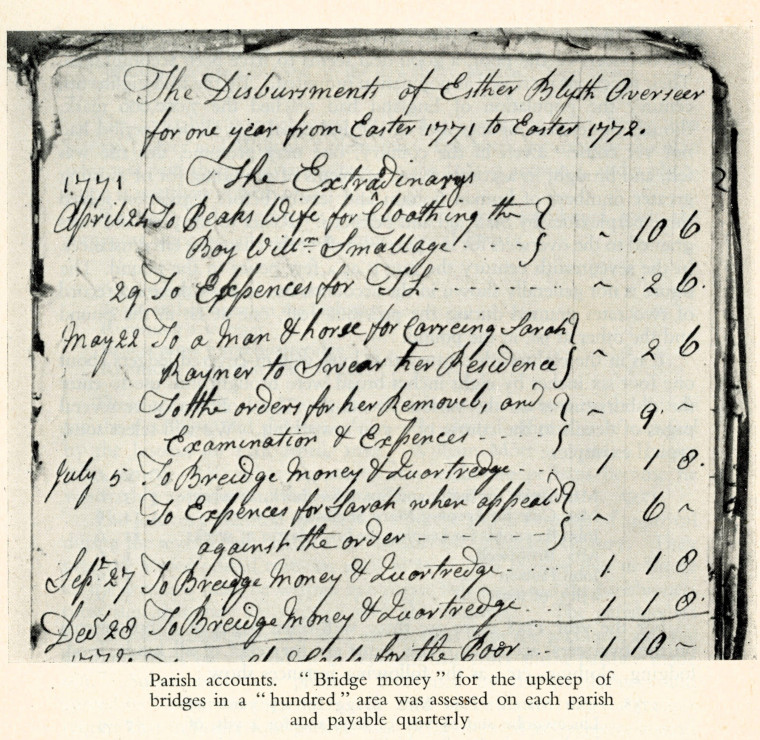 The Disbursments of Esther Blyth Overseer
for one year from Easter 1771 to Easter 1772.
1771 The Extradinarys
April 24 To Beaks Wife for Cloathing the
Boy Willm Smallage - 10 6
29 To Expences for - 2 6.
May 22 To a Man & horse for Carreing Sarah
Rayner to Swear her Residence - 2 6
To the orders for her Removel, and
Examination & Expences - 9 -
July 5 To Breidge Money & Quortredge 1 1 8.
To Expences for Sarah when appeald
against the order - 6 -
Sept 27 To Breidge Money & Quortredge 1 1 8
Decr 28 To Breidge Money & Quortredge 1 1 8.
for the Poor 1 10 -
2
Parish accounts. "Bridge money" for the upkeep of
bridges in a "hundred" area was assessed on each parish
and payable quarterly